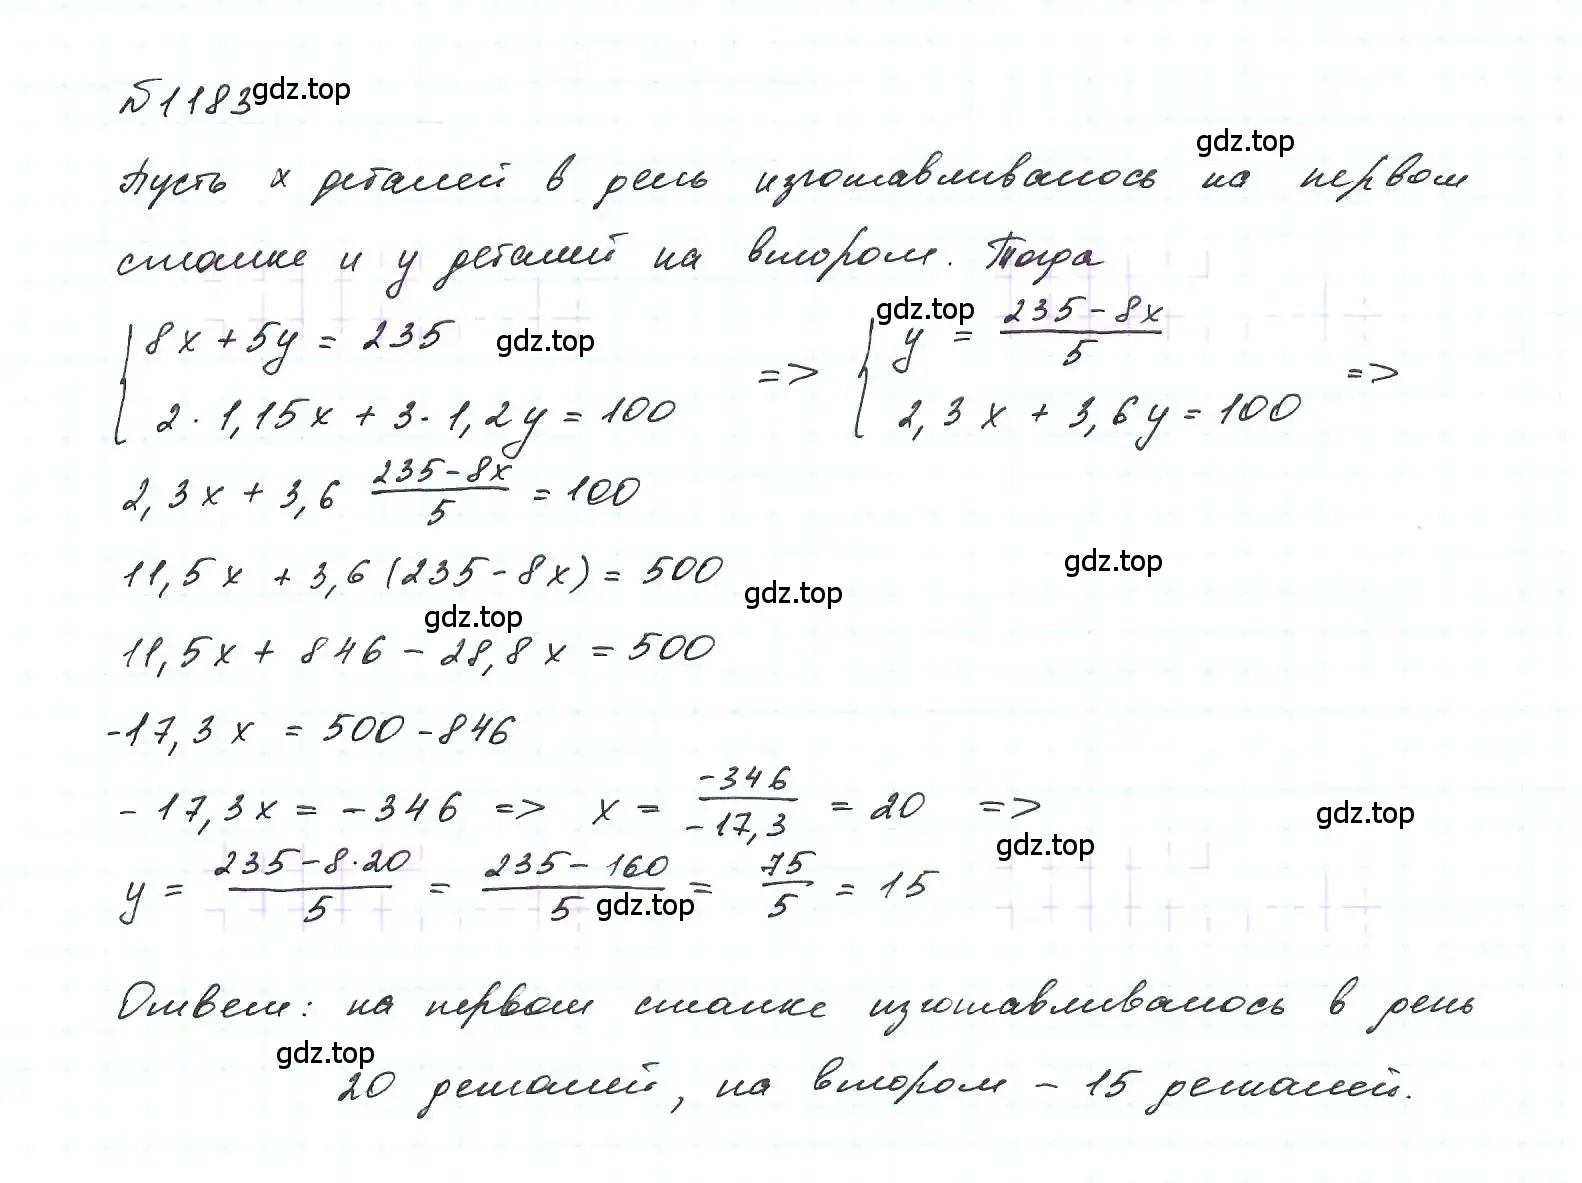 №1183 gdz.top
gdz.top
Пусть x деталей в день изготавливалось на первом
станке и y деталей на втором. Тогда
{ 8x + 5y = 235 gdz.top => { gdz.top y = (235 - 8x)/5 =>
2 · 1,15x + 3 · 1,2y = 100 2,3x + 3,6y = 100
2,3x + 3,6 (235 - 8x)/5 = 100
11,5x + 3,6(235 - 8x) = 500 gdz.top
gdz.top gdz.top
11,5x + 846 - 28,8x = 500
-17,3x = 500 - 846
-17,3x = -346 => x = -346/-17,3 = 20 => gdz.top
gdz.top
y = (235 - 8·20)/5 = (235 - 160)/5 = 75/5 = 15
gdz.top
Ответ: на первом станке изготавливалось в день
gdz.top
20 деталей, на втором - 15 деталей.